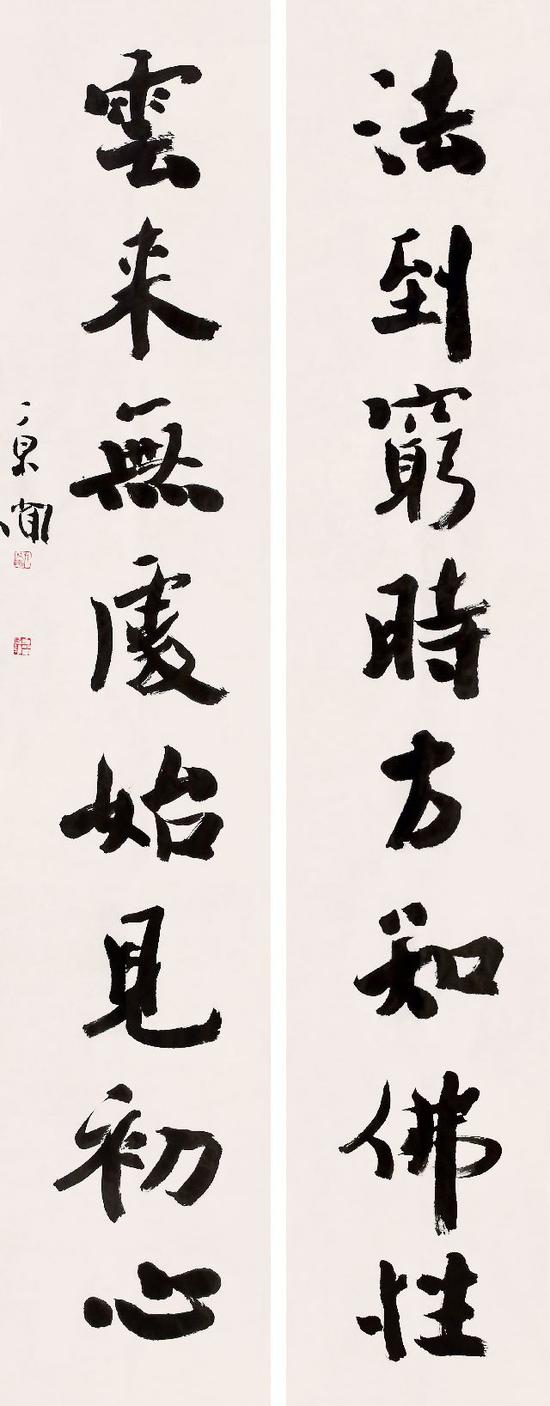 法到窮時方知佛性
雲来無處始見初心